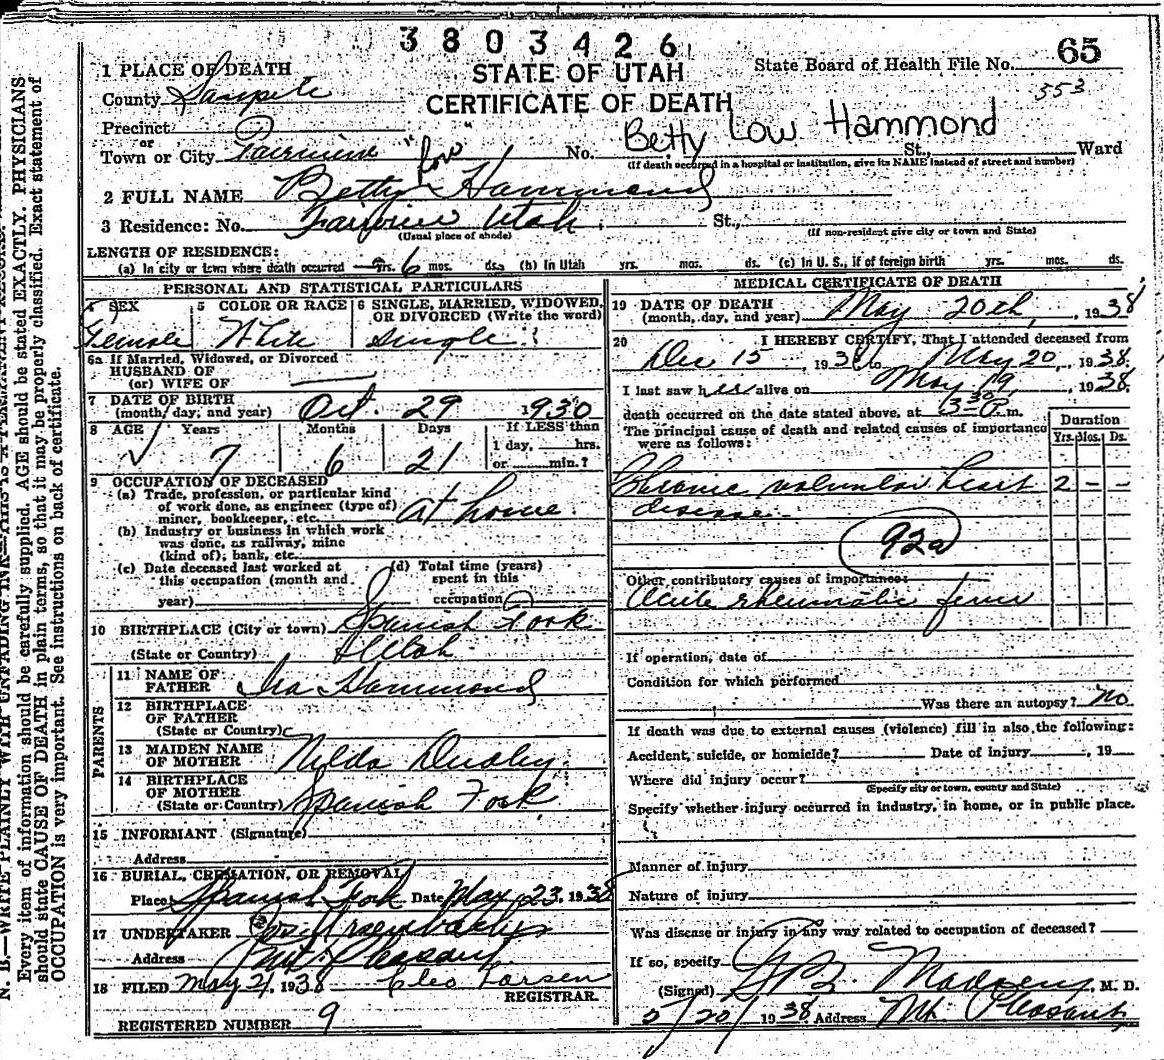 3803426
STATE OF UTAH
CERTIFICATE OF DEATH
State Board of Health File No. 65
553
1 PLACE OF DEATH
County Sanpete
Precinct
or
Town or City Fairview No. St., Ward
Betty Low Hammond
(If death occurred in a hospital or institution, give its NAME instead of street and number)
"Low"
2 FULL NAME Betty Hammond
3 Residence: No. Fairview Utah St.,
(Usual place of abode) (If non-resident give city or town and State)
LENGTH OF RESIDENCE:
(a) In city or town where death occurred yrs. 6 mos. ds. (b) In Utah yrs. mos. ds. (c) In U. S., if of foreign birth yrs. mos. ds.
PERSONAL AND STATISTICAL PARTICULARS
4 SEX
Female
5 COLOR OR RACE
White
6 SINGLE, MARRIED, WIDOWED, OR DIVORCED (Write the word)
Single
6a If Married, Widowed, or Divorced
HUSBAND OF
(or) WIFE OF
7 DATE OF BIRTH
(month, day, and year) Oct. 29 1930
8 AGE Years Months Days If LESS than
1 day, hrs.
7 6 21 or min.?
9 OCCUPATION OF DECEASED
(a) Trade, profession, or particular kind
of work done, as engineer (type of)
miner, bookkeeper, etc. at home
(b) Industry or business in which work
was done, as railway, mine
(kind of); bank, etc.
(c) Date deceased last worked at
this occupation (month and
year)
(d) Total time (years)
spent in this
occupation
10 BIRTHPLACE (City or town) Spanish Fork
(State or Country) Utah
PARENTS
11 NAME OF
FATHER Ira Hammond
12 BIRTHPLACE
OF FATHER
(State or Country)
13 MAIDEN NAME
OF MOTHER Nelda
14 BIRTHPLACE
OF MOTHER
(State or Country) Spanish Fork
15 INFORMANT (Signature)
Address
16 BURIAL, CREMATION, OR REMOVAL
Place Spanish Fork Date May 23, 1938
17 UNDERTAKER
Address Mt Pleasant
18 FILED May 21, 1938 Cleo Larsen
REGISTRAR.
REGISTERED NUMBER 9
MEDICAL CERTIFICATE OF DEATH
19 DATE OF DEATH
(month, day, and year) May 20th, 1938
20 I HEREBY CERTIFY, That I attended deceased from
Dec 15, 193 to May 20, 1938
I last saw her alive on May 19, 1938
death occurred on the date stated above, at 3:30 P. m.
The principal cause of death and related causes of importance
were as follows:
Duration
Yrs. Mos. Ds.
Chronic valvular heart 2 - -
disease
92a
Other contributory causes of importance:
Acute rheumatic fever
If operation, date of
Condition for which performed
Was there an autopsy? no
If death was due to external causes (violence) fill in also the following:
Accident, suicide, or homicide? Date of injury , 19
Where did injury occur?
(Specify city or town, county and State)
Specify whether injury occurred in industry, in home, or in public place.
Manner of injury
Nature of injury
Was disease or injury in any way related to occupation of deceased?
If so, specify
(Signed) Madsen, M. D.
5/20/1938 Address Mt. Pleasant
N. B.—WRITE PLAINLY WITH UNFADING INK—THIS IS A PERMANENT RECORD.
Every item of information should be carefully supplied. AGE should be stated EXACTLY. PHYSICIANS
should state CAUSE OF DEATH in plain terms, so that it may be properly classified. Exact statement of
OCCUPATION is very important. See instructions on back of certificate.